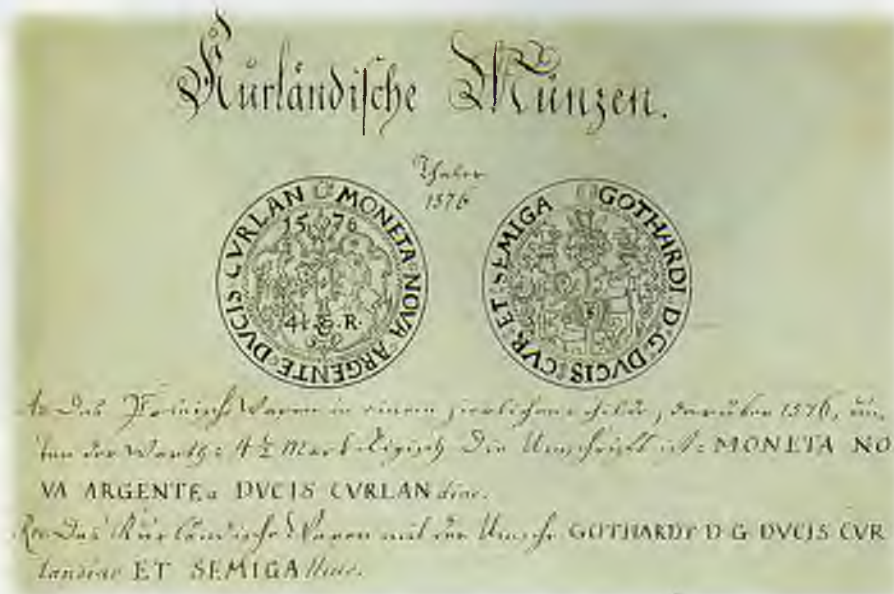 Kurländische Münzen.
Thaler
1576
MONETA NOVA ARGENTE DVCIS CVRLAN
1576
4½ R.
GOTHARDI D G DVCIS CVR ET SEMIGA
Av. Das Wapen in einem zierlichen Schilde, darüber 1576, un-
ten der Werth: 4 ½ Mark Rigisch Die Umschrift ist: MONETA NO
VA ARGENTEa DVCIS CVRLANdiae.
Rev. Das Kurländische Wapen mit der Umschr GOTHARDI D G DVCIS CVR
landiae ET SEMIGAlliae.